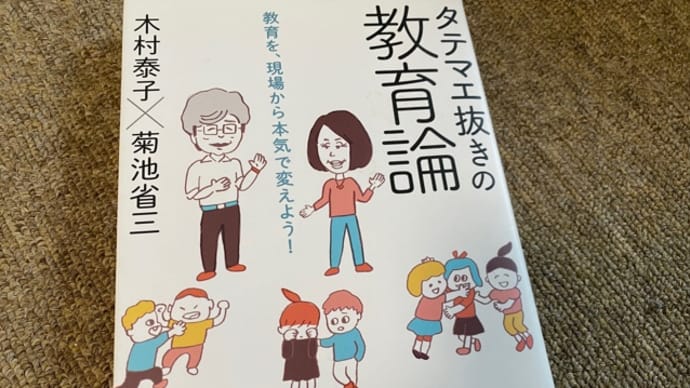 タテマエ抜きの
教育論
教育を、現場から本気で変えよう！
木村泰子×菊池省三